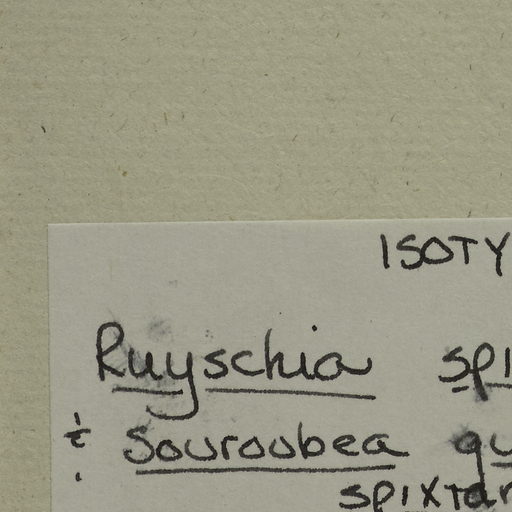 ISOTY
Ruyschia spi
Souroubea qu
spixtar